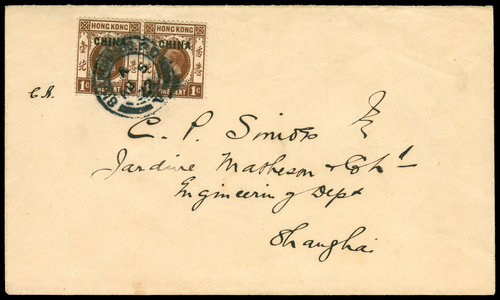 HONG KONG HONG KONG
CHINA CHINA
1C 1C
C. P. Simões
Jardine Matheson & Co Ld
Engineering Dept
Shanghai